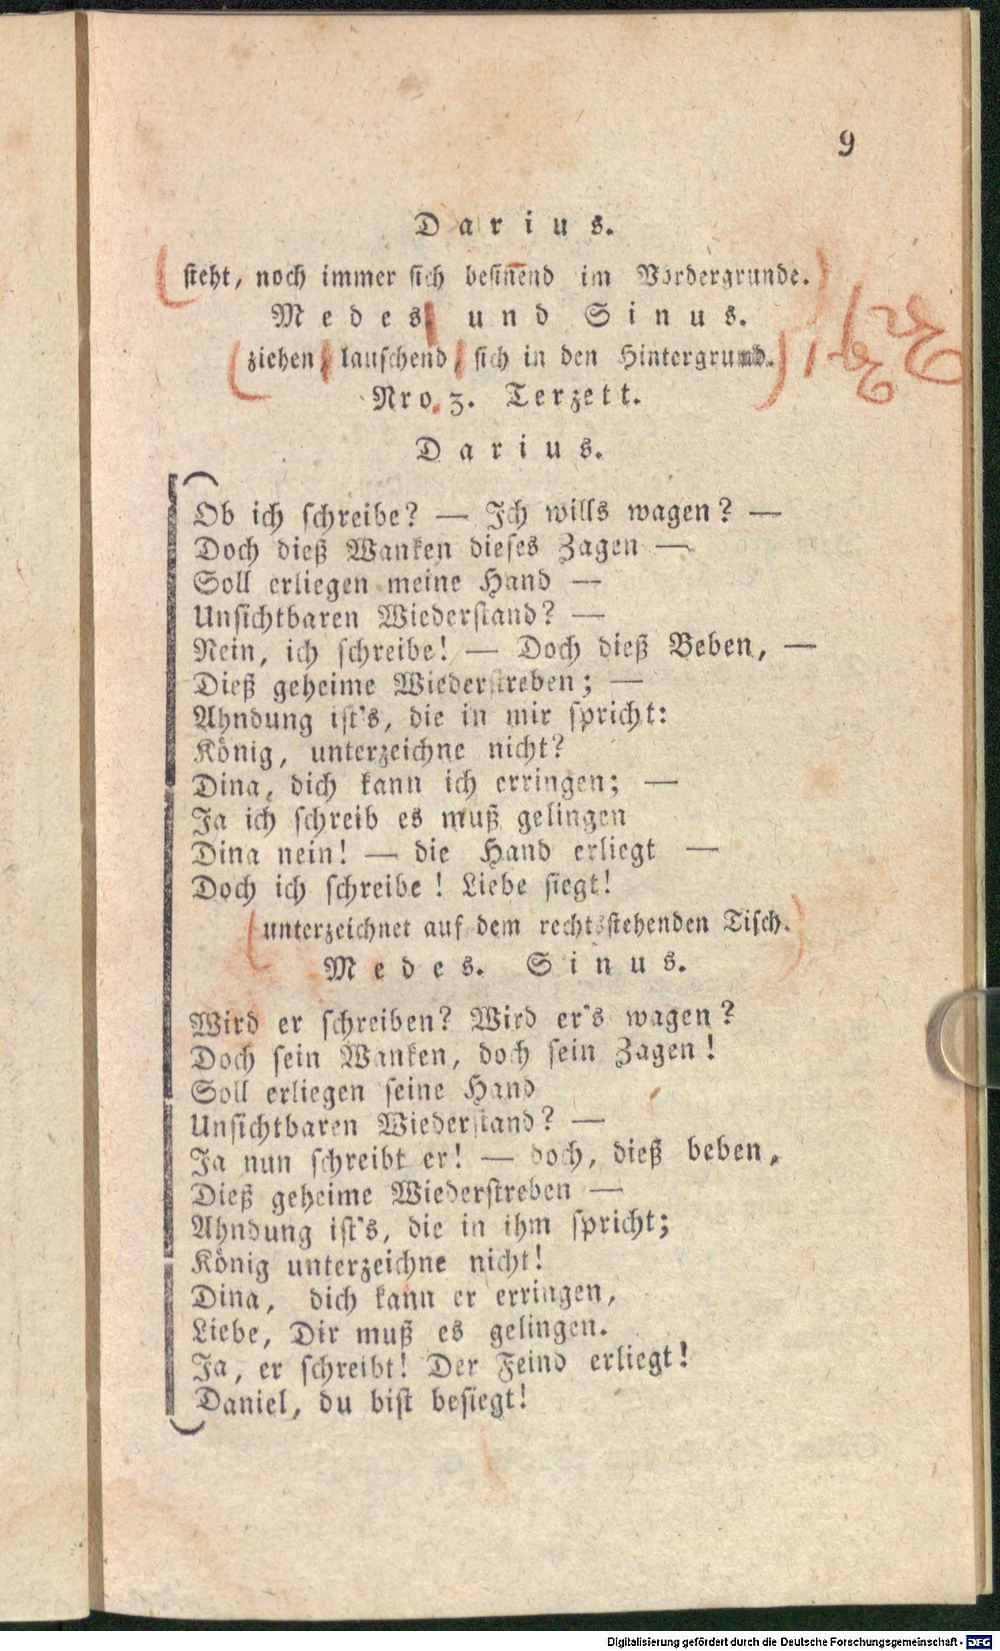 9
Darius.
steht, noch immer sich besinnend im Vordergrunde.
Medes, und Sinus.
ziehen, lauschend, sich in den Hintergrund.
Nro. 3. Terzett.
Darius.
Ob ich schreibe? — Ich wills wagen? —
Doch dieß Wanken dieses Zagen —
Soll erliegen meine Hand —
Unsichtbaren Wiederstand? —
Nein, ich schreibe! — Doch dieß Beben, —
Dieß geheime Wiederstreben; —
Ahndung ist's, die in mir spricht:
König, unterzeichne nicht?
Dina, dich kann ich erringen; —
Ja ich schreib es muß gelingen
Dina nein! — die Hand erliegt —
Doch ich schreibe! Liebe siegt!
unterzeichnet auf dem rechtsstehenden Tisch.
Medes. Sinus.
Wird er schreiben? Wird er's wagen?
Doch sein Wanken, doch sein Zagen!
Soll erliegen seine Hand
Unsichtbaren Wiederstand? —
Ja nun schreibt er! — doch, dieß beben,
Dieß geheime Wiederstreben —
Ahndung ist's, die in ihm spricht;
König unterzeichne nicht!
Dina, dich kann er erringen,
Liebe, Dir muß es gelingen.
Ja, er schreibt! Der Feind erliegt!
Daniel, du bist besiegt!
Digitalisierung gefördert durch die Deutsche Forschungsgemeinschaft - DFG